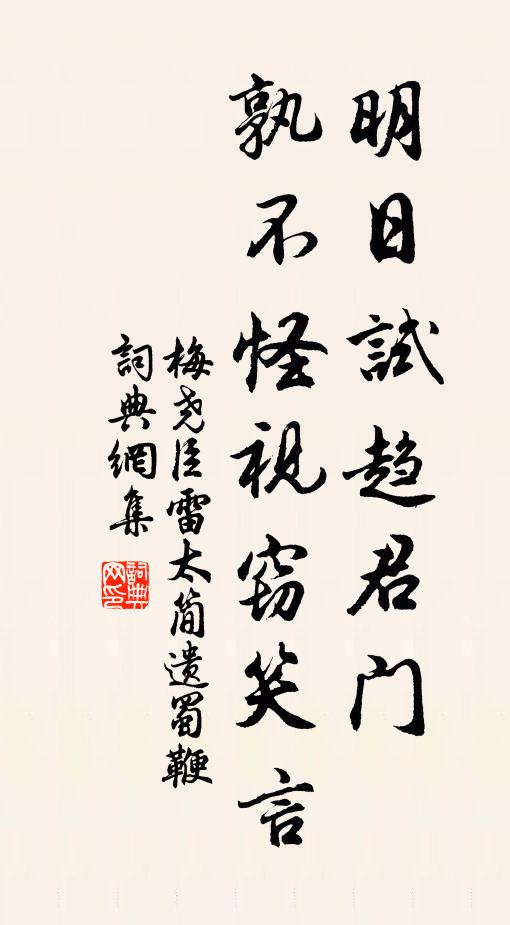 明日試趋君門
孰不怪視窃笑言
梅尧臣雷太简遗蜀鞭
詞典網集
詞典网印